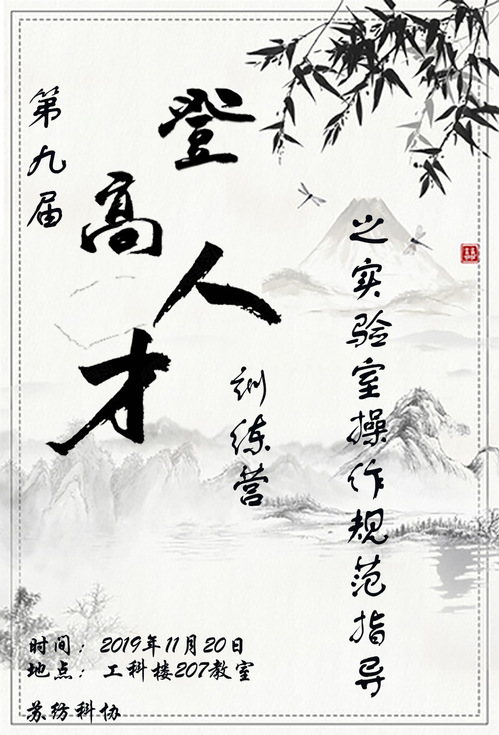 第九届
登高人才
训练营
之实验室操作规范指导
时间：2019年11月20日
地点：工科楼207教室
苏纺科协